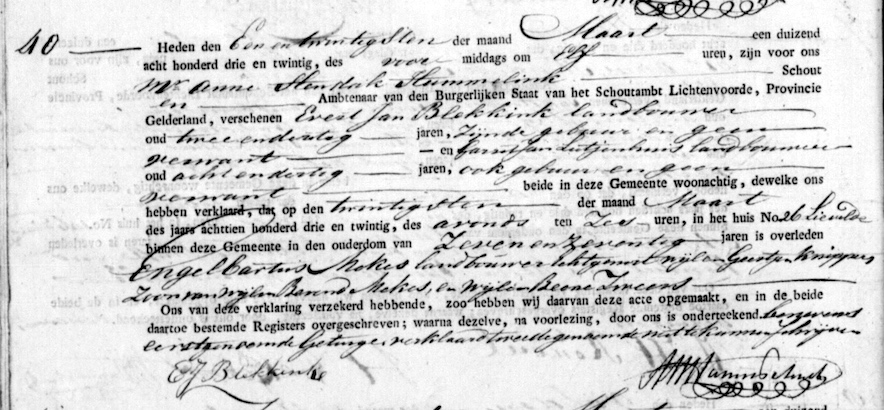 40 Heden den Een en twintigsten der maand Maart een duizend
acht honderd drie en twintig, des voor middags om Elf uren, zijn voor ons
Mr Anne Hendrik Hummelink Schout
en Ambtenaar van den Burgerlijken Staat van het Schoutambt Lichtenvoorde, Provincie
Gelderland, verschenen Evert Jan Blekkink landbouwer
oud twee en dertig jaren, zijnde gebuur en geen
verwant en Jan landbouwer
oud acht en dertig jaren, ook gebuur en geen
verwant beide in deze Gemeente woonachtig, dewelke ons
hebben verklaard, dat op den twintigsten der maand Maart
des jaars achttien honderd drie en twintig, des avonds ten Zes uren, in het huis No. 26 Lievelde
binnen deze Gemeente in den ouderdom van Zeven en Zeventig jaren is overleden
Engelbartus Mekes landbouwer echtgenoot wijlen Geertjen Knippers
Zoon van wijlen Berend Mekes, en wijlen Beene
Ons van deze verklaring verzekerd hebbende, zoo hebben wij daarvan deze acte opgemaakt, en in de beide
daartoe bestemde Registers overgeschreven; waarna dezelve, na voorlezing, door ons is onderteekend. benevens
eerstgenoemde Getuige verklaard tweedegenoemde niet te kunnen schrijven
EJ Blekkink